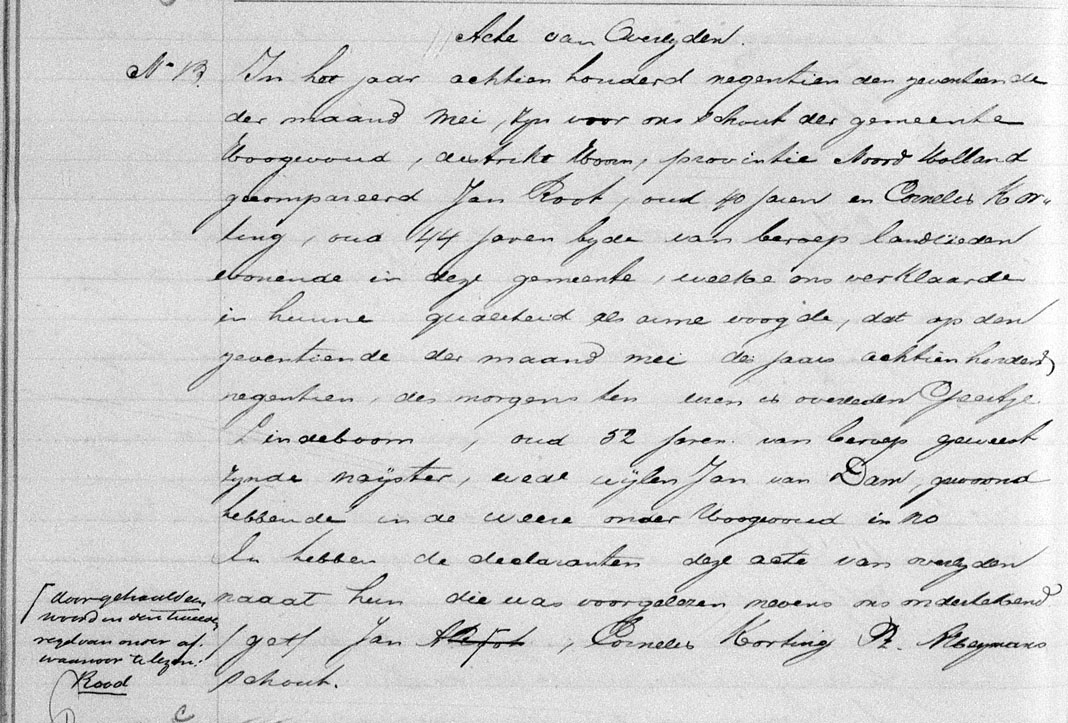 Acte van Overlyden.
No 13. In het jaar achtien honderd negentien den zeventiende
der maand Mei, zyn voor ons Schout der gemeente
Hoogwoud, distrikt Hoorn, provintie Noord Holland
gecompareerd Jan Root, oud 40 Jaren en Cornelis Kor-
ting, oud 44 Jaren byde van beroep landlieden
wonende in deze gemeente, welke ons verklaarde
in hunne qualiteid als arme voogde, dat op den
zeventiende der maand mei des jaars achtienhonderd
negentien, des morgens tien uren is overleden
Lindeboom, oud 52 Jaren van beroep geweest
zynde nayster, wede wylen Jan van Dam, gewoond
hebbende in de weere onder Hoogwoud in no
En hebben de declaranten deze acte van overlyden
naaat hun die was voorgelezen nevens ons onderteekend
/get/ Jan , Cornelis Korting Pz.
Schout.
doorgehaald een
woord in den tweede
regel van onder af
waarvoor te lezen:
Rood